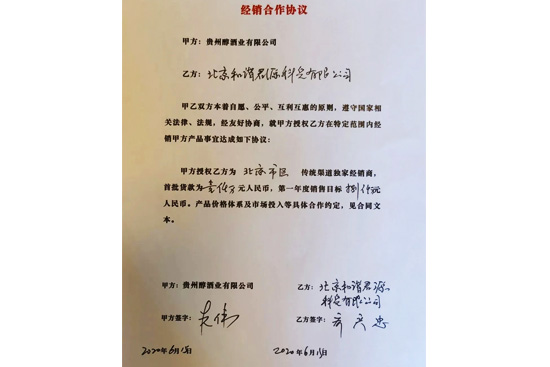 经销合作协议
甲方：贵州醇酒业有限公司
乙方：北京和谐君源科贸有限公司
甲乙双方本着自愿、公平、互利互惠的原则，遵守国家相
关法律、法规，经友好协商，就甲方授权乙方在特定范围内经
销甲方产品事宜达成如下协议：
甲方授权乙方为 北京市区 传统渠道独家经销商，
首批货款为壹仟万元人民币，第一年度销售目标 捌仟万元
人民币。产品价格体系及市场投入等具体合作约定，见合同文
本。
甲方：贵州醇酒业有限公司
乙方：北京和谐君源
科贸有限公司
甲方签字：
乙方签字：
2020年6月15日
2020年6月15日